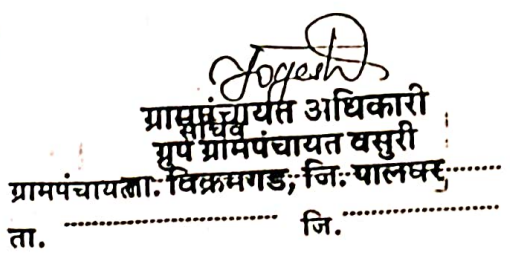 Yogesh
ग्रामपंचायत अधिकारी
सचिव
ग्रुप ग्रामपंचायत वसुरी
ग्रामपंचायत ता. विक्रमगड, जि. पालघर
ता. जि.